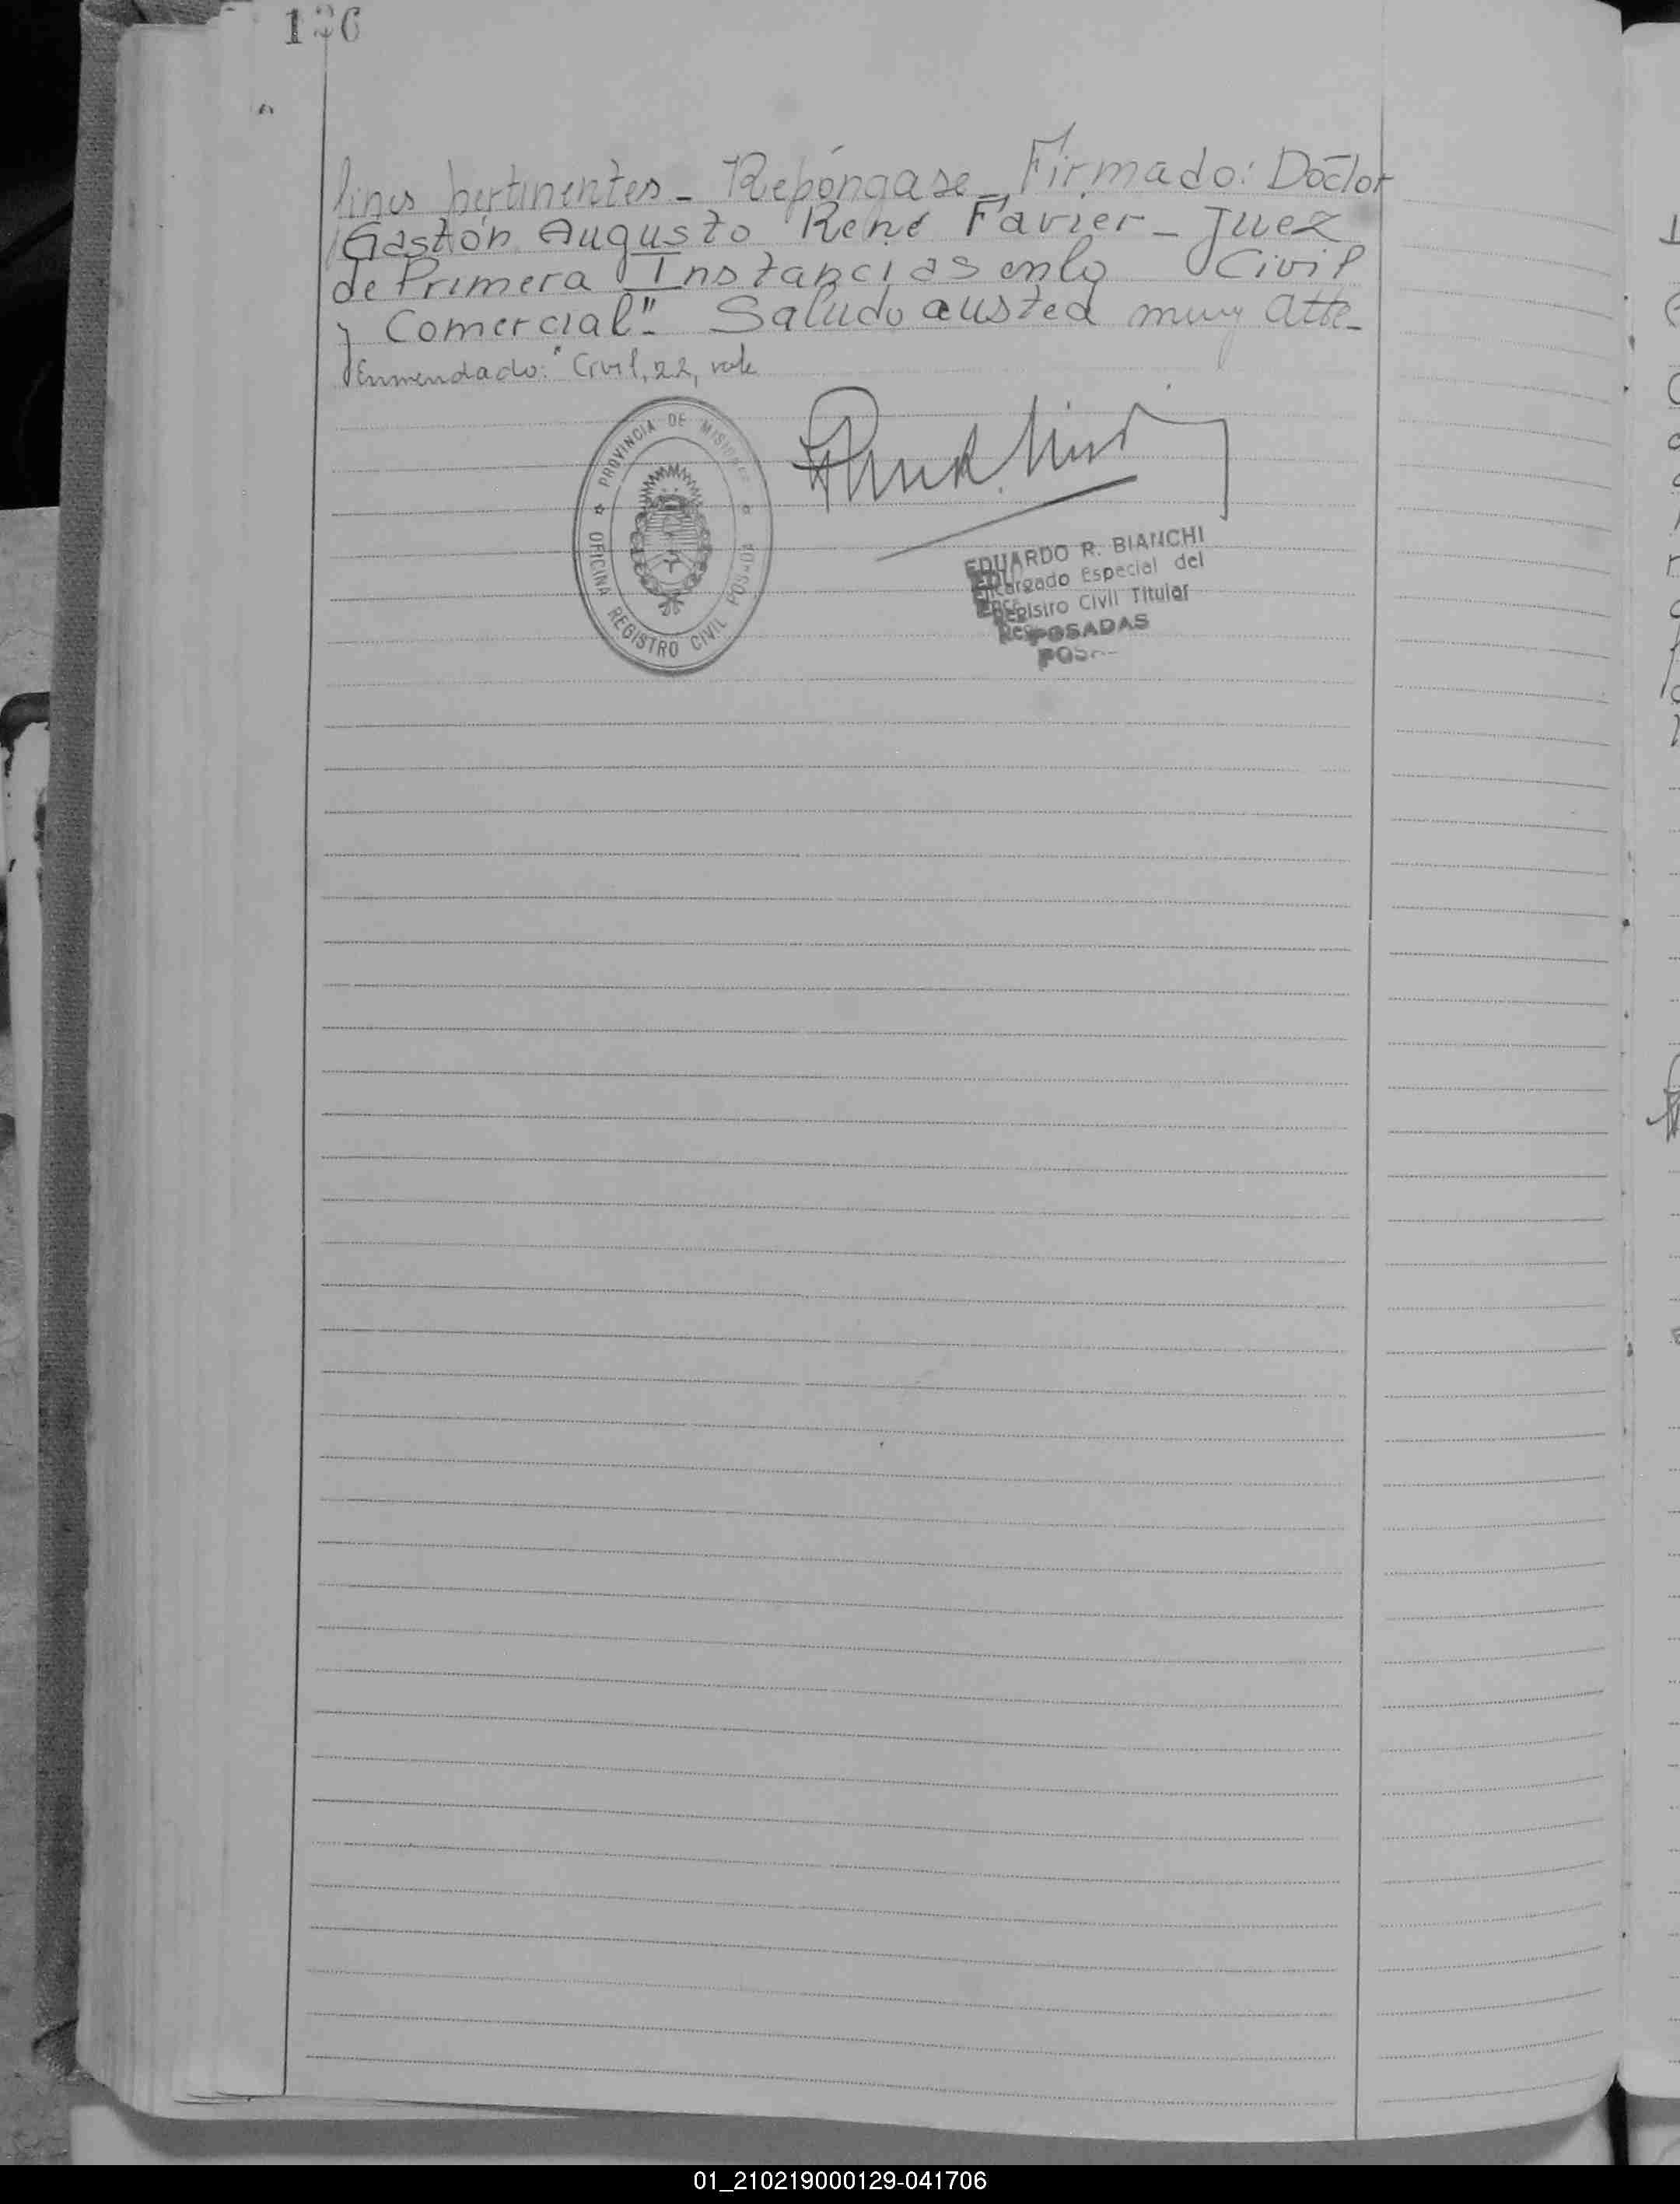 136
fines pertinentes - Repóngase - Firmado: Doctor
Gastón Augusto René Favier - Juez
de Primera Instancias en lo Civil
y Comercial". Saludo a usted muy atte-
Enmendado: "Civil, 22, vale
PROVINCIA DE MISIONES
OFICINA REGISTRO CIVIL POSADAS
EDUARDO R. BIANCHI
Encargado Especial del
Registro Civil Titular
POSADAS
01_210219000129-041706